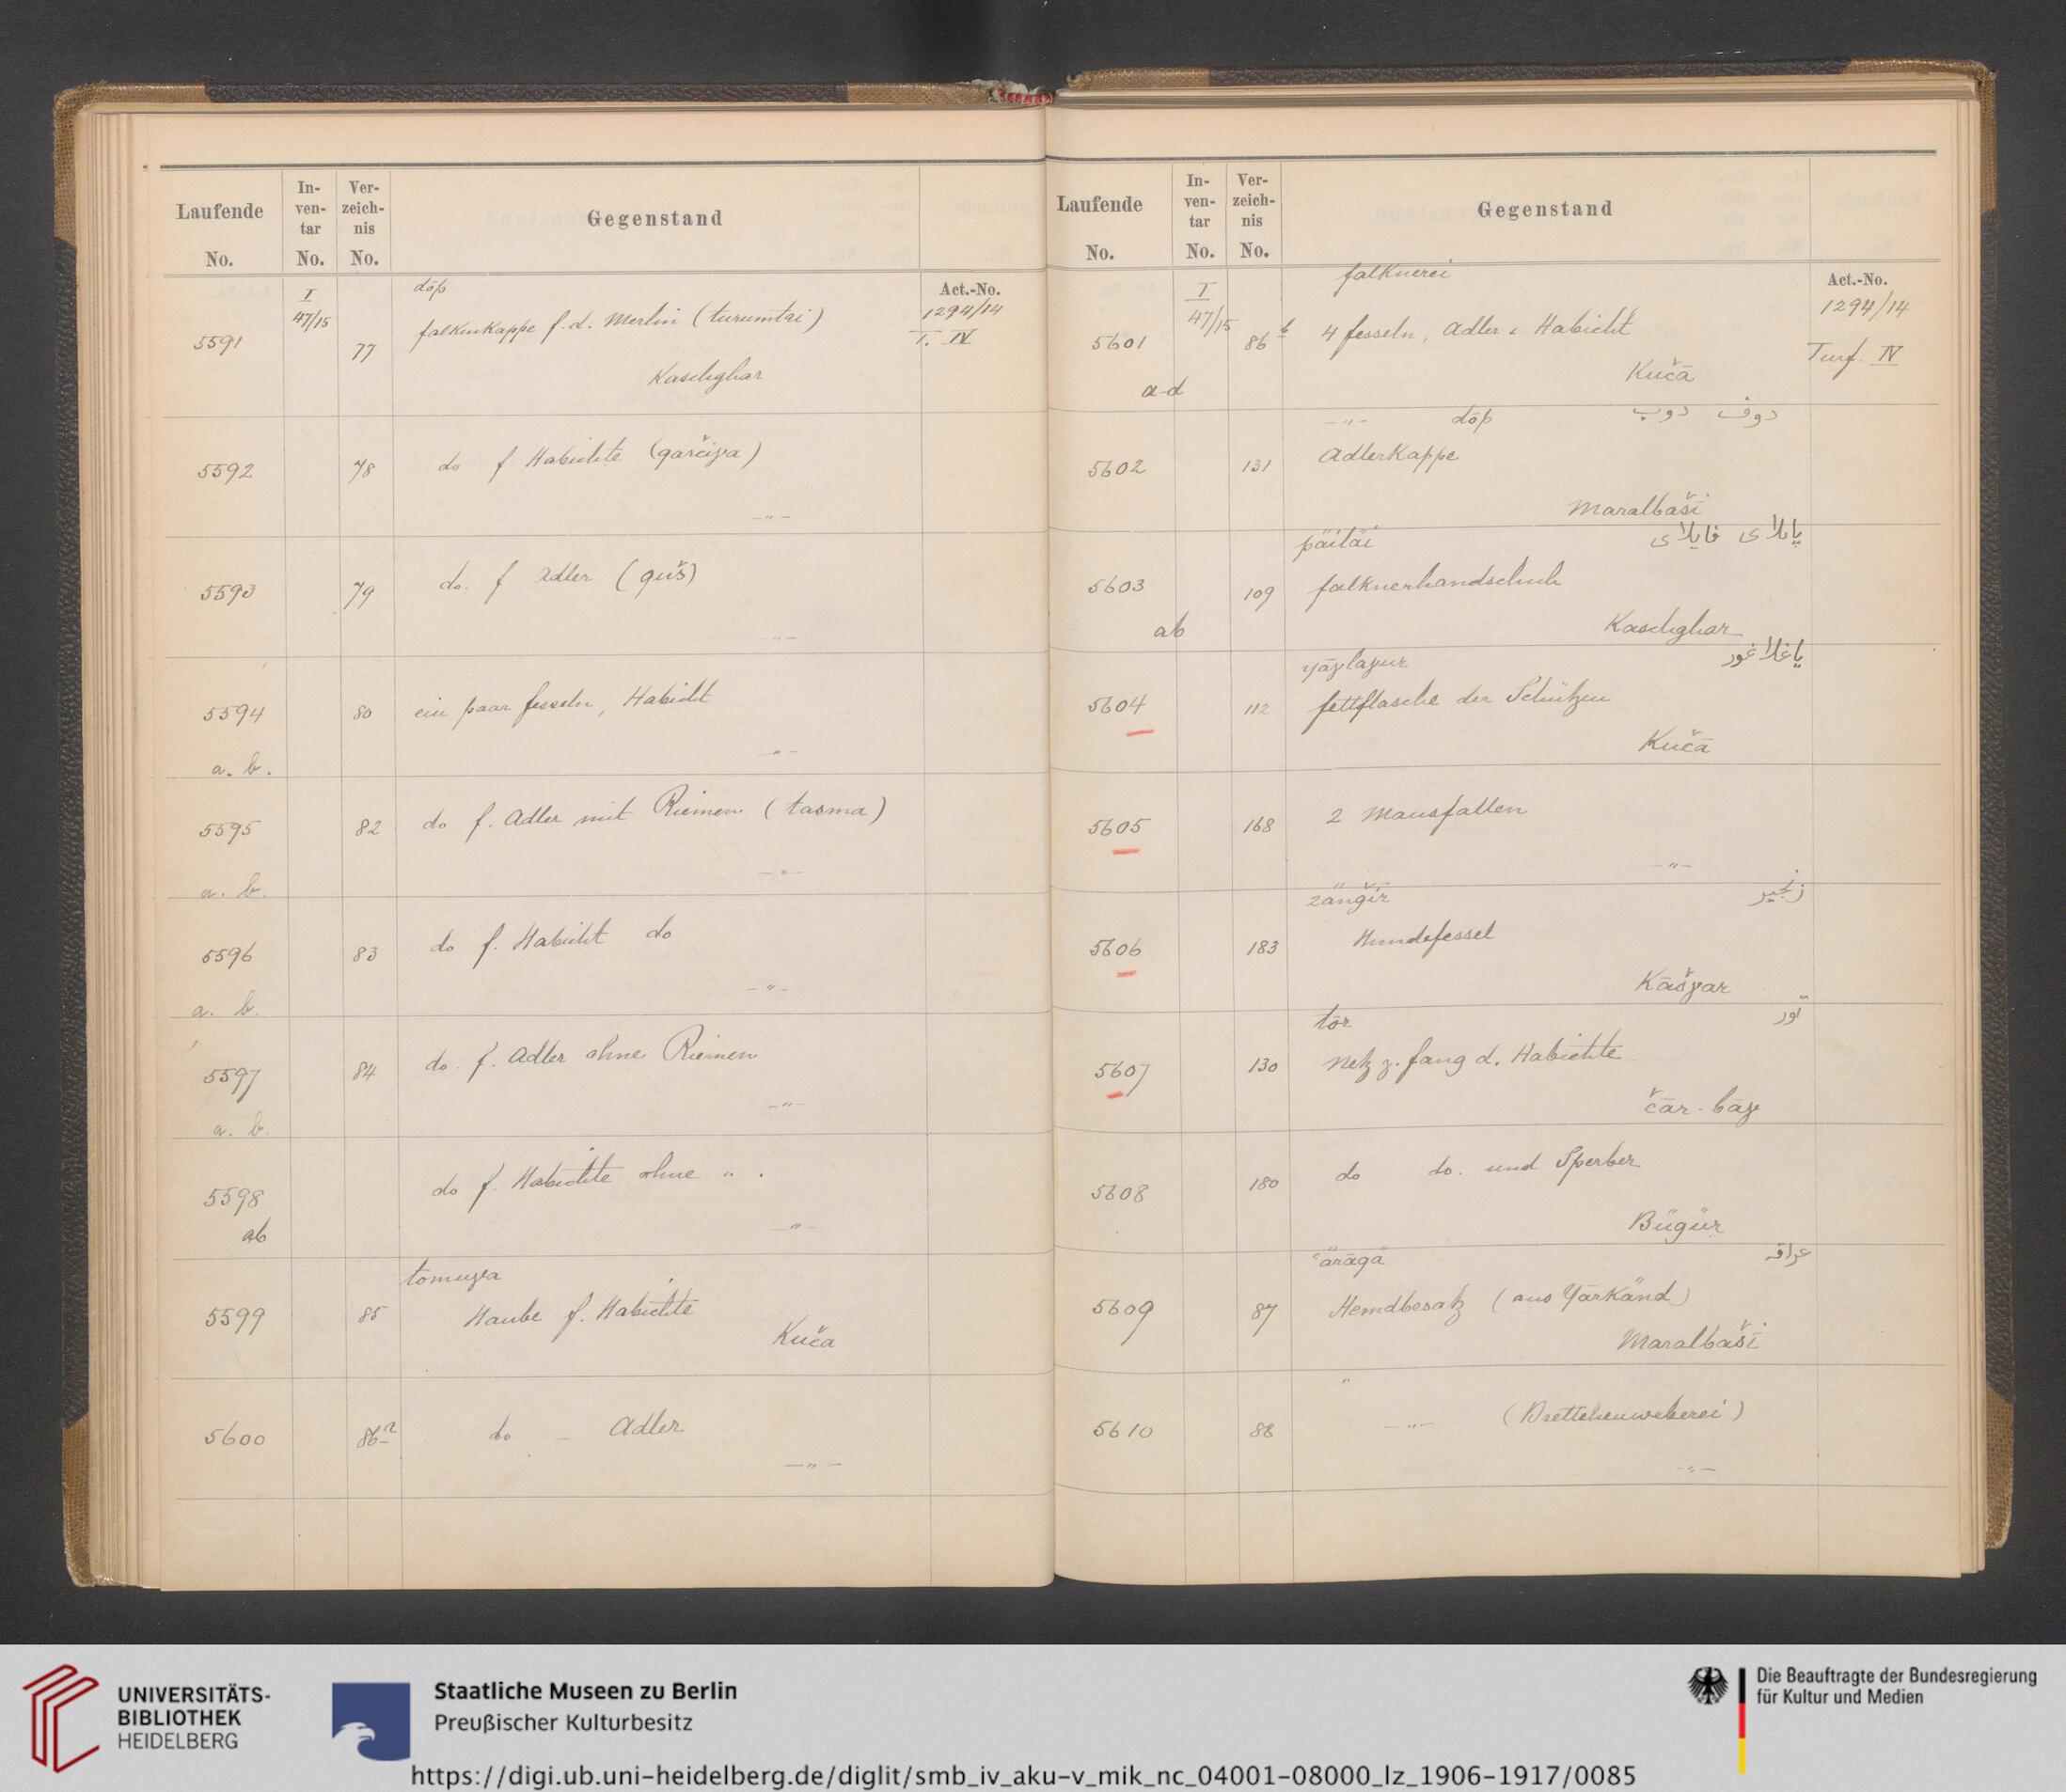 Laufende No. In-ven-tar No. Ver-zeich-nis No. Gegenstand
I 47/15 döp Act.-No. 1294/14
5591 77 Falkenkappe f. d. Merlin (turumtai) T. IV
Kaschghar
5592 78 do f. Habichte (qarčiγa)
—"—
5593 79 do. f Adler (quš)
—"—
5594 80 ein paar Fesseln, Habicht
a. b. —"—
5595 82 do f. Adler mit Riemen (tasma)
a. b. —"—
5596 83 do f. Habicht do
a. b. —"—
5597 84 do. f. Adler ohne Riemen
a. b. —"—
5598 do f. Habichte ohne " .
ab —"—
tomuγa
5599 85 Haube f. Habichte
Kuča
5600 86a do — Adler
—"—
Laufende No. In-ven-tar No. Ver-zeich-nis No. Gegenstand
I 47/15 Falknerei Act.-No. 1294/14
5601 86b 4 Fesseln, Adler & Habicht Turf. IV
a-d Kučā
—"— döp دوف دوپ
5602 131 Adlerkappe
Maralbašī
päiläi پایلای فایلای
5603 109 Falknerhandschuh
ab Kaschghar
yāγlaγur یاغلاغور
5604 112 Fettflasche der Schützen
Kučā
5605 168 2 Mausfallen
—"—
zänǧīr زنجیر
5606 183 Hundefessel
Kāšγar
tōr تور
5607 130 Netz z. Fang d. Habichte
čār-bāγ
5608 180 do do. und Sperber
Bügür
ʿärāqä عراقه
5609 87 Hemdbesatz (aus Yārkänd)
Maralbašī
"
5610 88 —"— (Brettchenweberei)
—"—
UNIVERSITÄTS-
BIBLIOTHEK
HEIDELBERG
Staatliche Museen zu Berlin
Preußischer Kulturbesitz
Die Beauftragte der Bundesregierung
für Kultur und Medien
https://digi.ub.uni-heidelberg.de/diglit/smb_iv_aku-v_mik_nc_04001-08000_lz_1906-1917/0085